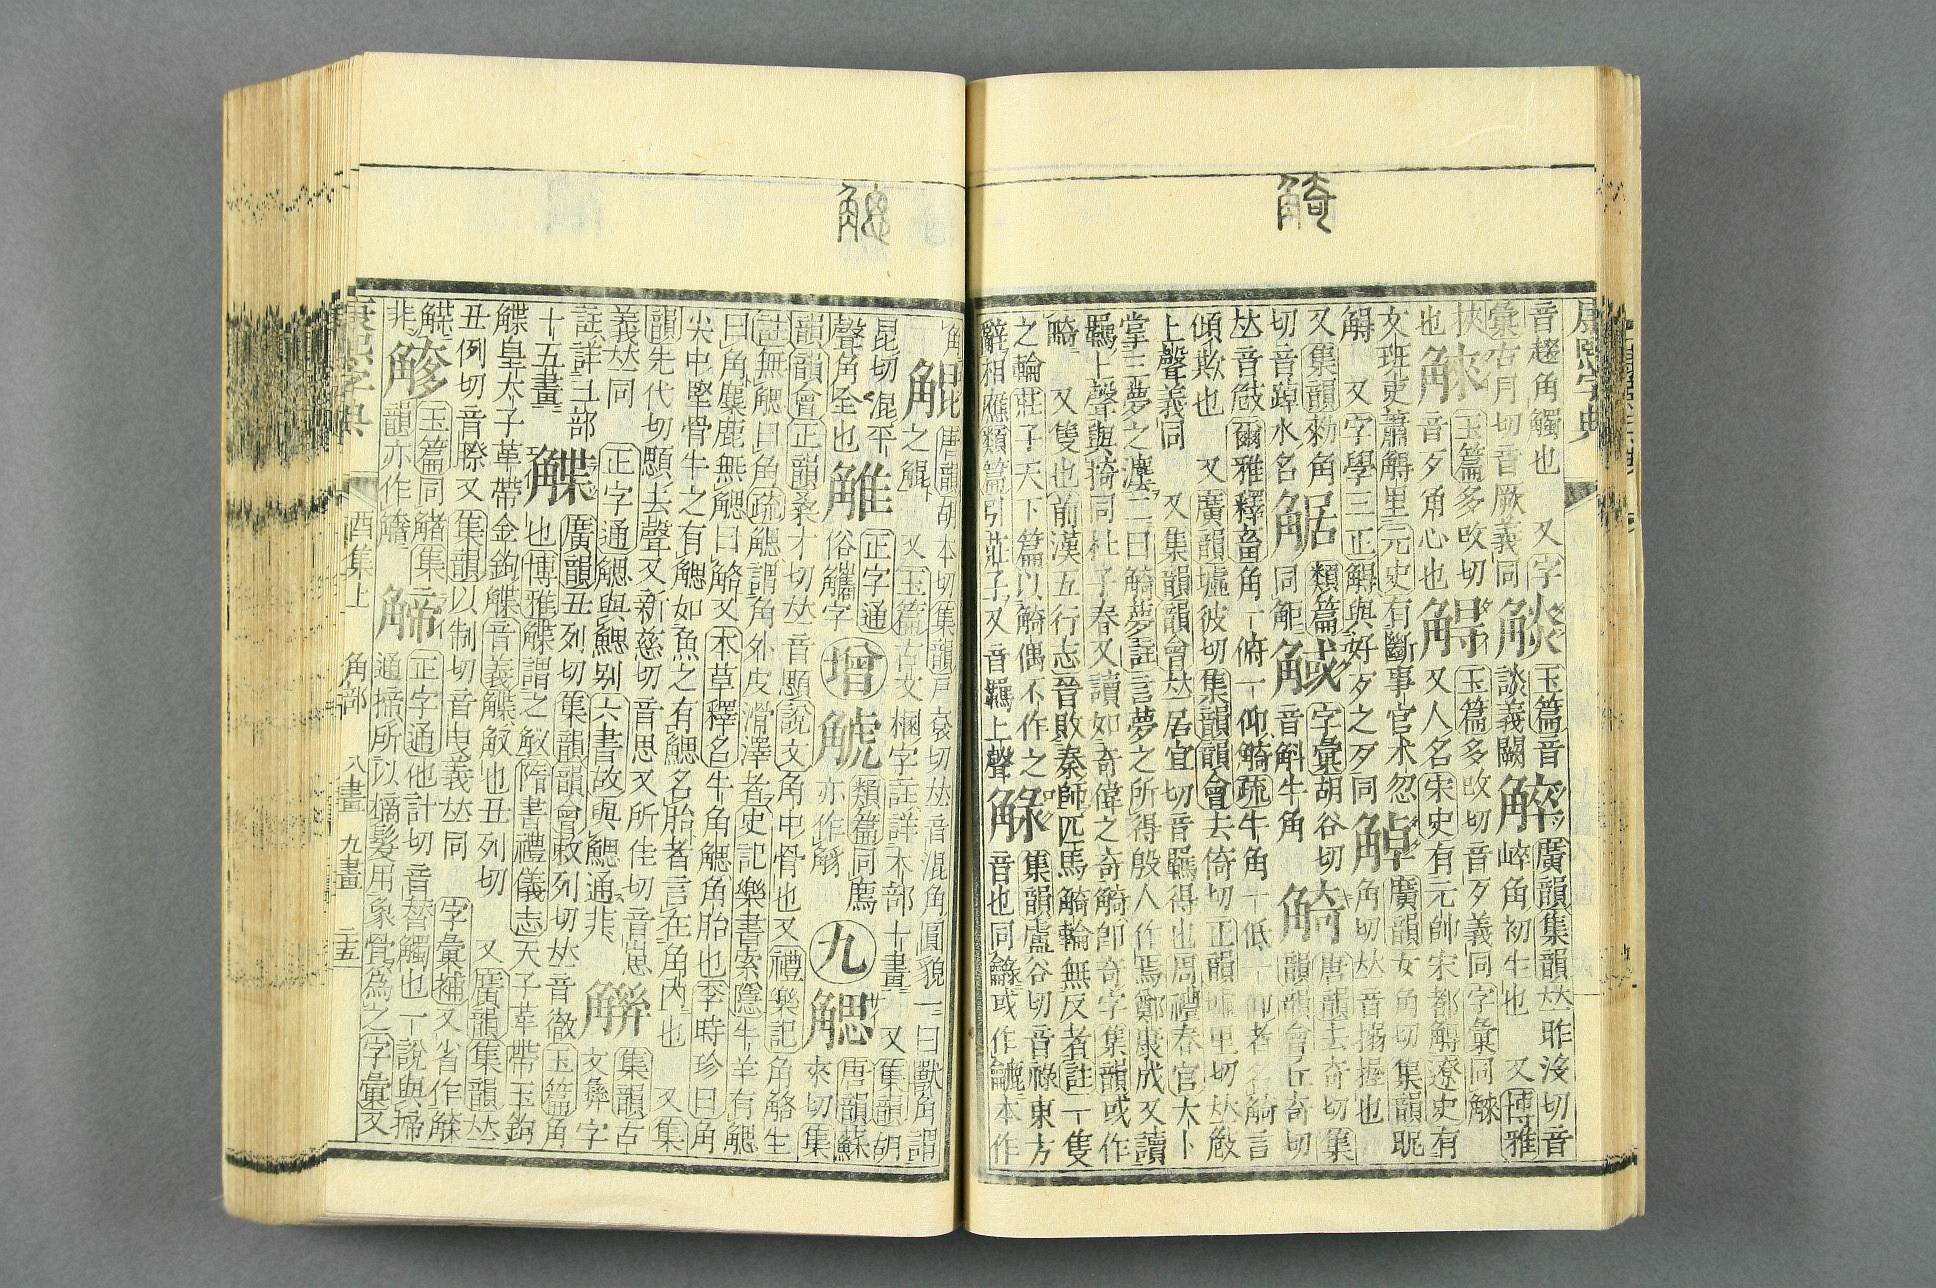 觭
康熙字典
音趨角觸也　又字
彙古月切音厥義同
觤
玉篇音
談義闕
䚝
廣韻集韻𠀤昨沒切音
崒角初生也　又博雅
挾
也
䚞
玉篇多改切
音歹角心也
䚛
玉篇多改切音歹義同字彙同
又人名宋史有元帥宋都䚛遼史有
文班吏蕭䚛里元史有斷事官朮忽
䚛　又字學三正䚛與好歹之歹同
䚚
廣韻女角切集韻昵
角切𠀤音搦握也
又集韻敕角
切音踔水名
䚘
類篇
同觝
𧣼
字彙胡谷切
音斛牛角
觭
唐韻去奇切集
韻韻會丘奇切
𠀤音攲爾雅釋畜角一俯一仰觭疏牛角一低一仰者名觭言
傾欹也　又廣韻墟彼切集韻韻會去倚切正韻墟里切𠀤攲
上聲義同　又集韻韻會𠀤居宜切音羈得也周禮春官大卜
掌三夢之灋二曰觭夢註言夢之所得殷人作焉鄭康成又讀
羈上聲與掎同杜子春又讀如奇偉之奇觭卽奇字集韻或作
畸　又隻也前漢五行志晉敗秦師匹馬觭輪無反者註一隻
之輪莊子天下篇以觭偶不作之
辭相應類篇引莊子又音羈上聲
䚄
集韻盧谷切音祿東方
音也同龣或作䚄本作
觽
角
䚠
唐韻胡本切集韻戶袞切𠀤音混角圓貌一曰獸角謂
之䚠　又玉篇古文梱字註詳木部十畫　又集韻胡
昆切混平
聲角全也
䧹
正字通
俗觿字
增
䚦
類篇同廌
亦作觸
九
䚡
唐韻蘇
來切集
韻韻會正韻桑才切𠀤音顋說文角中骨也又禮樂記角觡生
註無䚡曰角疏䚡謂角外皮滑澤者史記樂書索隱牛羊有䚡
曰角麋鹿無䚡曰觡又本草釋名牛角䚡角胎也李時珍曰角
尖中堅骨牛之有䚡如魚之有鰓名胎者言在角內也　又集
韻先代切顋去聲又新慈切音思又所佳切音崽
義𠀤同　正字通䚡與鰓別六書故與鰓通非
䚨
集韻古
文彝字
註詳彐部
十五畫
䚢
廣韻丑列切集韻韻會敕列切𠀤音徹玉篇角
也博雅䚢謂之㪏隋書禮儀志天子革帶玉鉤
䚢皇太子革帶金鉤䚢音義䚢㪏也丑列切　又廣韻集韻𠀤
丑例切音瘵又集韻以制切音曳義𠀤同　字彙補又省作觧
䚢
非
䚧
玉篇同䚪集
韻亦作䚪
䚣
正字通他計切音替觸也一說與揥
通揥所以摘髮用象骨爲之字彙又
康熙字典　酉集上　角部　八畫　九畫　二五